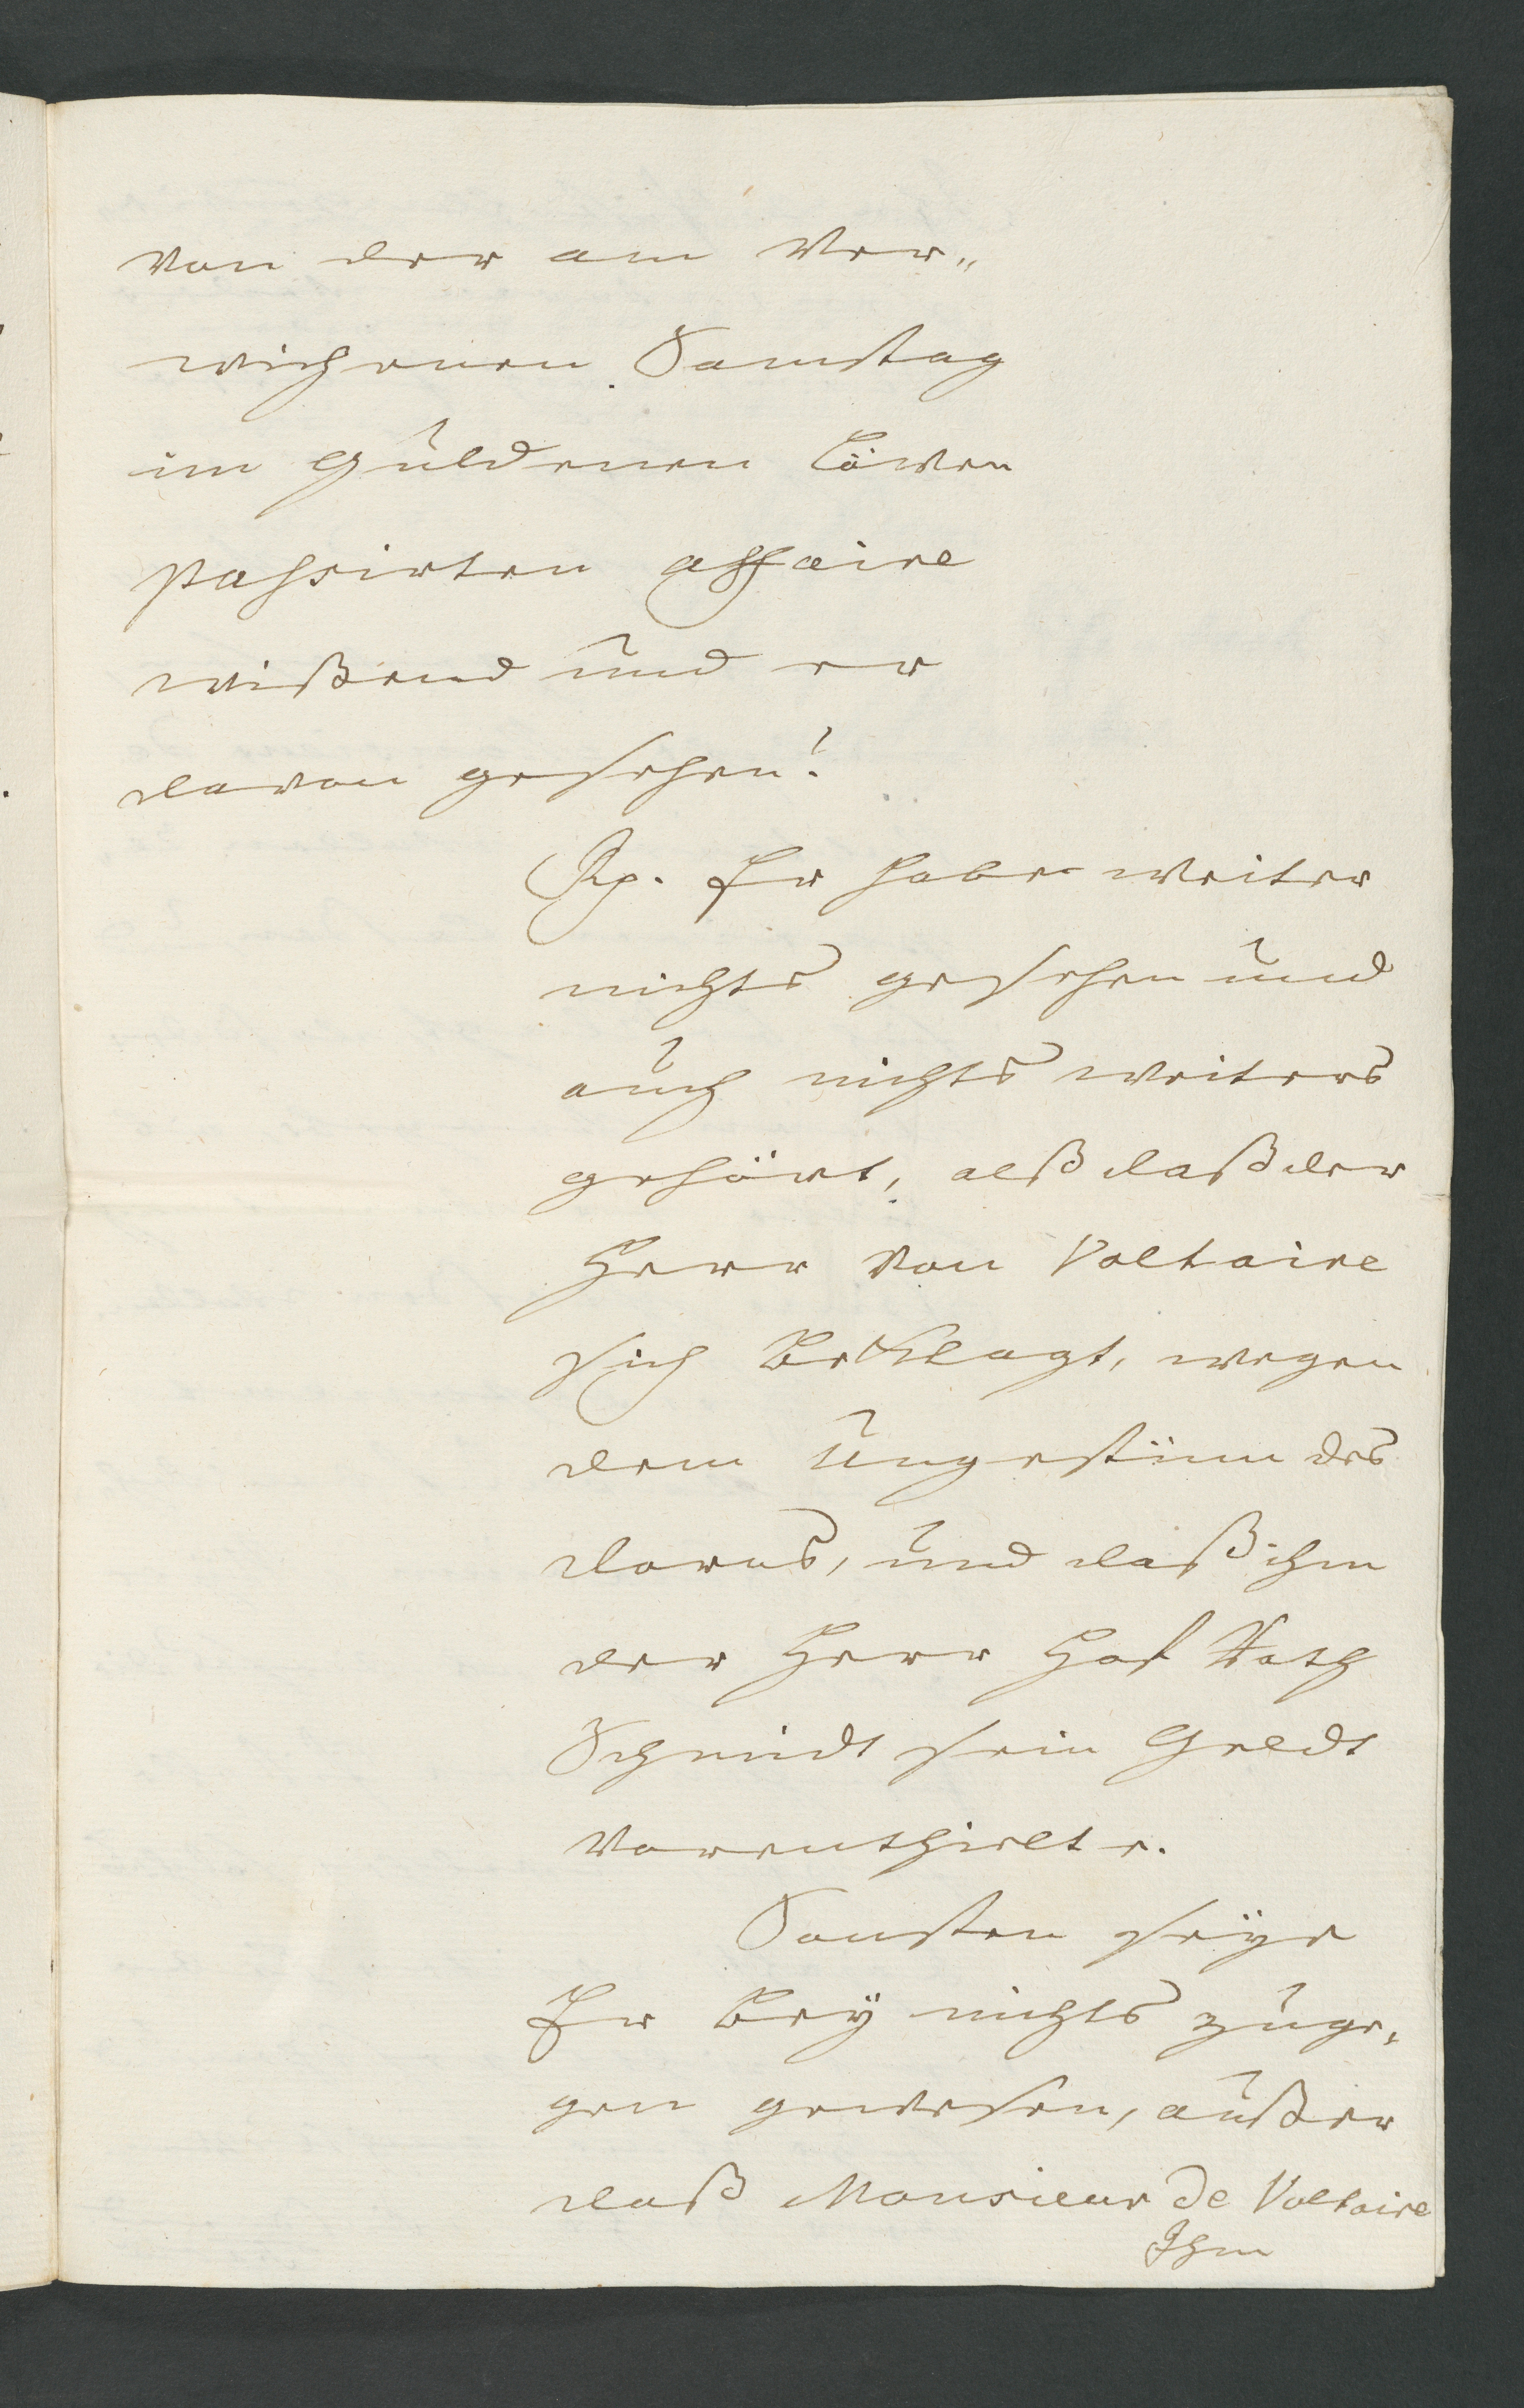 von der am ver„
wichenen Samstag
im güldenen Löwen
passirten affaire
wißend und er
davon gesehen?
Rp. Er habe weiter
nichts gesehen und
auch nichts weiters
gehört, alß daß der
Herr von Voltaire
sich beklagt, wegen
dem Ungestüm des
Dorns, und daß ihm
der Herr Hof Rath
Schmidt sein Geldt
vorenthielte.
Sonsten seÿe
Er beÿ nichts zuge„
gen gewesen, außer
daß Monsieur de Voltaire
Ihm